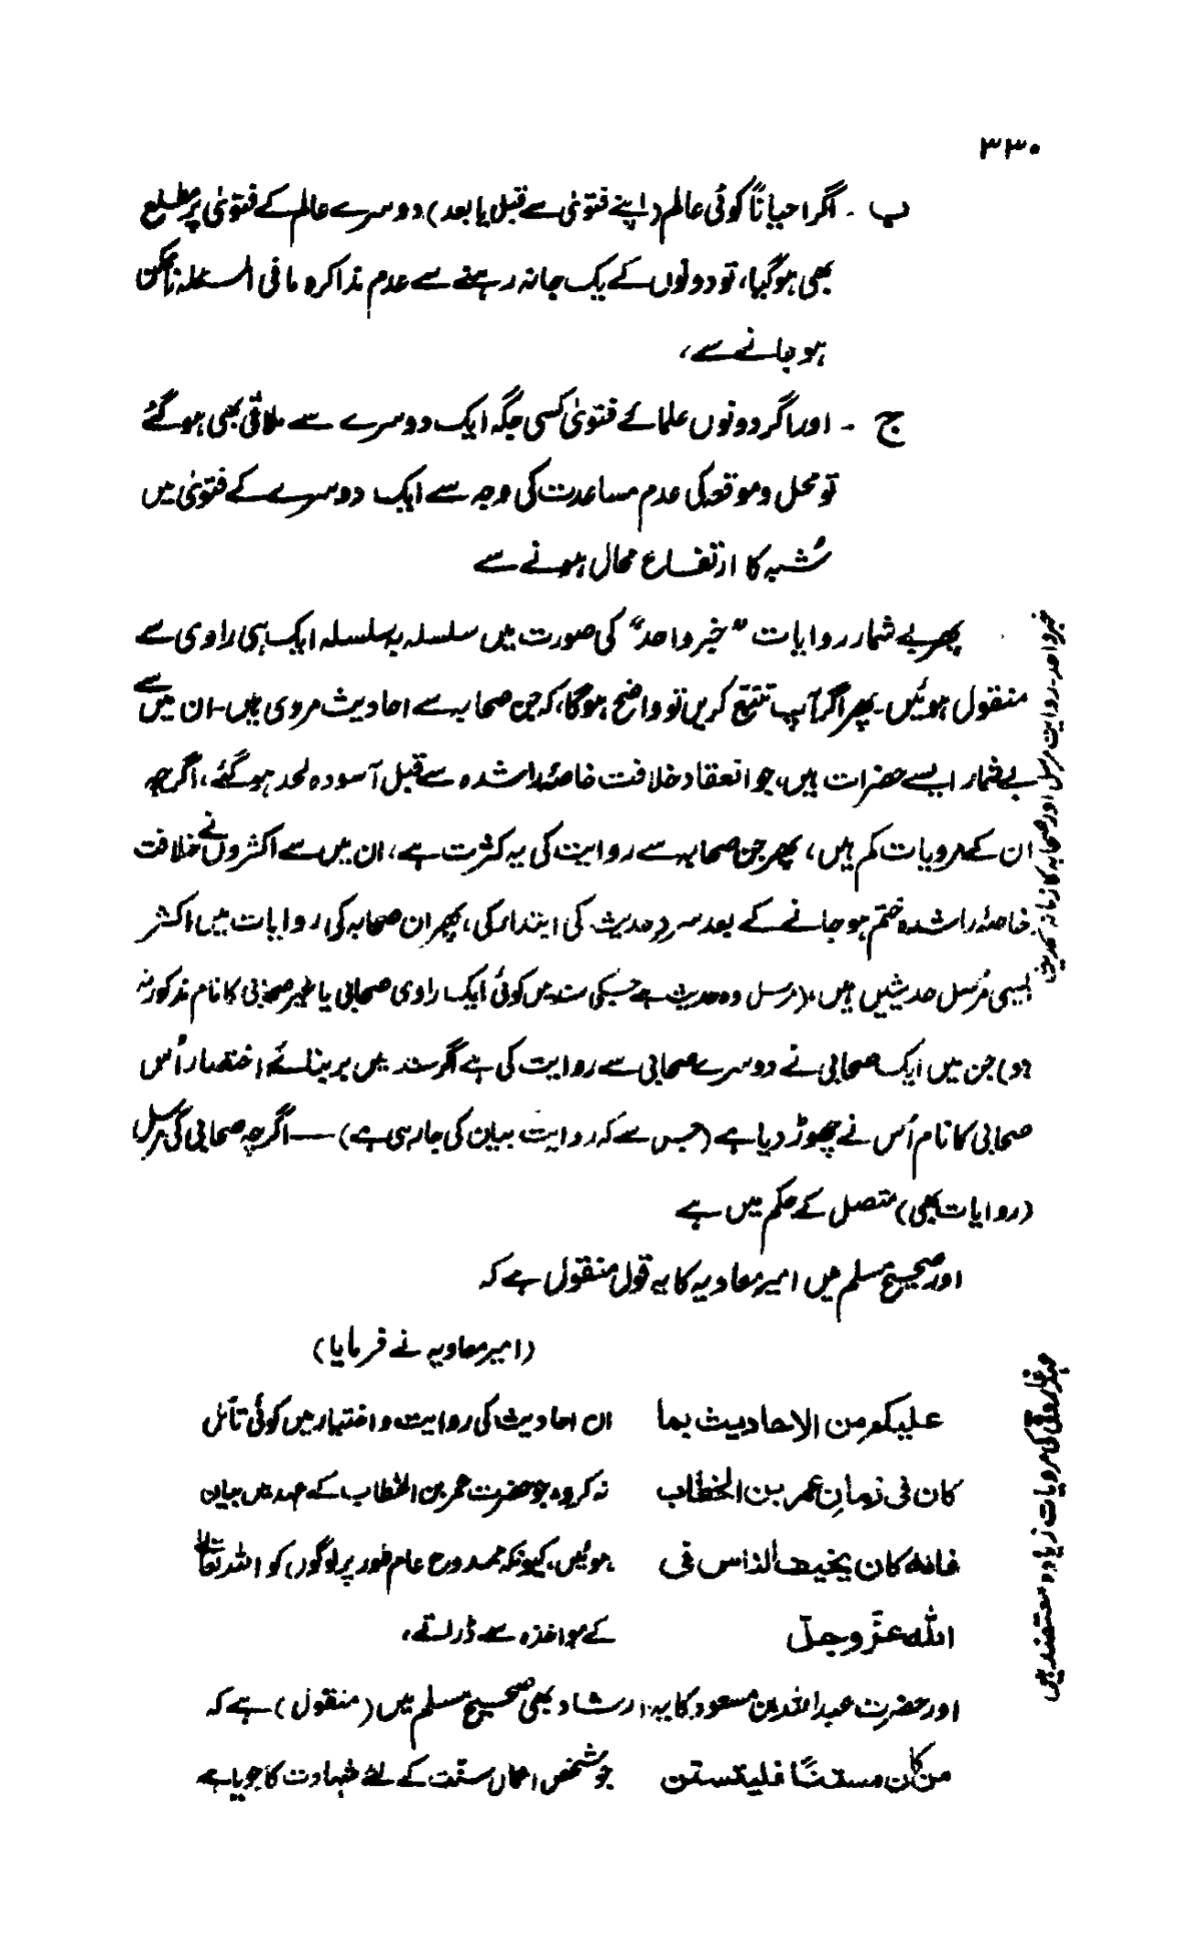 ۳۳۰
ب - اگر احیاناً کوئی عالم (اپنے فتوٰی سے قبل یا بعد) دوسرے عالم کے فتوٰی پر مطلع
بھی ہوگیا، تو دونوں کے یک جا نہ رہنے سے عدم مذاکرہ ما فی المسئلہ ناممکن
ہو جانے سے،
ج - اور اگر دونوں علمائے فتویٰ کسی جگہ ایک دوسرے سے ملاقی بھی ہوگئے
تو محل و موقعہ کی عدم مساعدت کی وجہ سے ایک دوسرے کے فتویٰ میں
شُبہ کا ارتفاع محال ہونے سے
پھر بے شمار روایات "خبر واحد" کی صورت میں سلسلہ بہ سلسلہ ایک ہی راوی سے
منقول ہوئیں۔ پھر اگر آپ تتبع کریں تو واضح ہوگا، کہ جن صحابہ سے احادیث مروی ہیں۔ ان میں سے
بے شمار ایسے حضرات ہیں، جو انعقاد خلافت خاصۂ راشدہ سے قبل آسودہ لحد ہوگئے، اگرچہ
ان کے مرویات کم ہیں، پھر جن صحابہ سے روایت کی یہ کثرت ہے، ان میں سے اکثروں نے خلافت
خاصۂ راشدہ ختم ہو جانے کے بعد سرد حدیث کی ابتدار کی، پھر ان صحابہ کی روایات میں اکثر
ایسی مُرسل حدیثیں ہیں، (مرسل وہ حدیث ہے جسکی سند میں کوئی ایک راوی صحابی یا غیر صحابی کا نام مذکور نہ
ہو) جن میں ایک صحابی نے دوسرے صحابی سے روایت کی ہے مگر سند میں بربنائے اختصار اُس
صحابی کا نام اُس نے چھوڑ دیا ہے (جس سے کہ روایت بیان کی جا رہی ہے) — اگرچہ صحابی کی مرسل
(روایات بھی) متصل کے حکم میں ہے
اور صحیح مسلم میں امیر معاویہ کا یہ قول منقول ہے کہ
(امیر معاویہ نے فرمایا)
علیکم من الاحادیث بما ان احادیث کی روایت و اختیار میں کوئی تأمل
کان فی زمانِ عمر بن الخطّاب نہ کرو، جو حضرت عمر بن الخطاب کے عہد میں بیان
فانہ کان یخیف الناس فی ہوئیں، کیونکہ ممدوح عام طور پر لوگوں کو اللہ تعالیٰ
اللہ عزّ وجلّ کے مواخذہ سے ڈراتے،
اور حضرت عبداللہ بن مسعود کا یہ ارشاد بھی صحیح مسلم میں (منقول) ہے کہ
من کان مستنًّا فلیستن جو شخص اعمال سنّت کے لئے شہادت کا جویا ہے
خبر واحد۔ روایت مرسل اور صحابہ کا زمانہ تحدیث
عہد فاروقی کی مرویات زیادہ معتمد ہیں